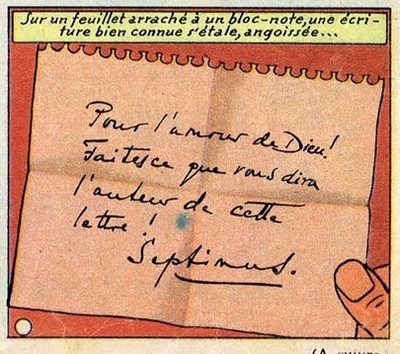 Sur un feuillet arraché à un bloc-note, une écri-
ture bien connue s'étale, angoissée...
Pour l'amour de Dieu!
Faites ce que vous dira
l'auteur de cette
lettre!
Septimus.